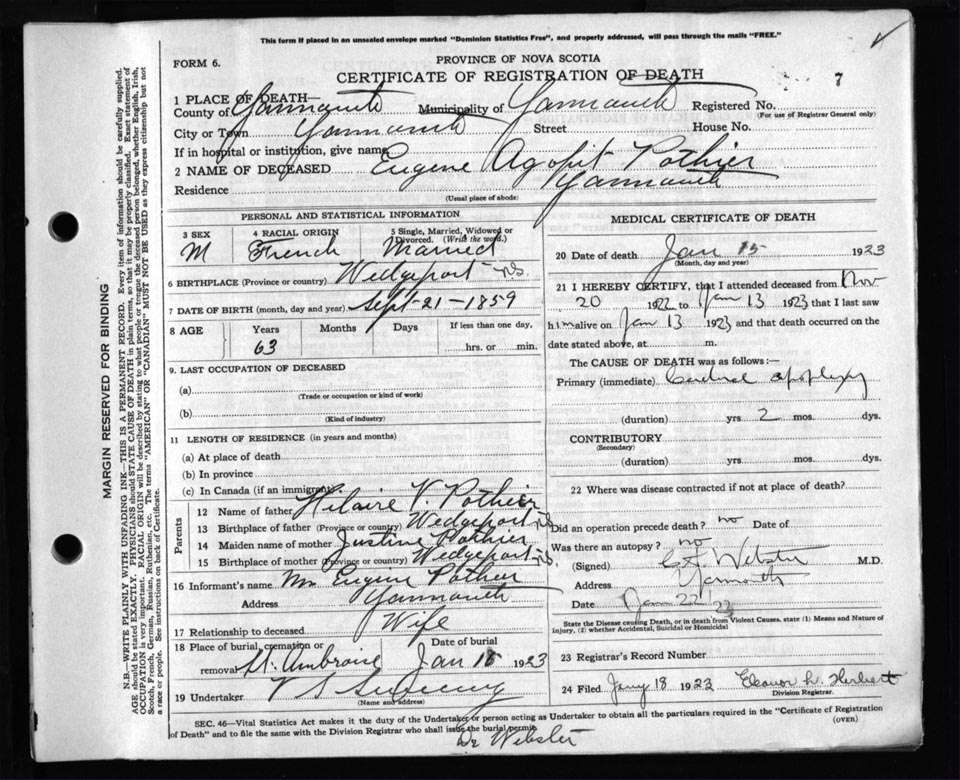 This form if placed in an unsealed envelope marked "Dominion Statistics Free", and properly addressed, will pass through the mails "FREE."
FORM 6.
PROVINCE OF NOVA SCOTIA
CERTIFICATE OF REGISTRATION OF DEATH
7
1 PLACE OF DEATH—
County of Yarmouth Municipality of Yarmouth Registered No.
(For use of Registrar General only)
City or Town Yarmouth Street House No.
If in hospital or institution, give name
2 NAME OF DECEASED Eugene Agopit Pothier
Residence Yarmouth
(Usual place of abode)
PERSONAL AND STATISTICAL INFORMATION
3 SEX
M
4 RACIAL ORIGIN
French
5 Single, Married, Widowed or Divorced. (Write the word.)
Married
6 BIRTHPLACE (Province or country) Wedgeport NS.
7 DATE OF BIRTH (month, day and year) Sept-21-1859
8 AGE
Years
63
Months
Days
If less than one day,
hrs. or min.
9. LAST OCCUPATION OF DECEASED
(a)
(Trade or occupation or kind of work)
(b)
(Kind of industry)
11 LENGTH OF RESIDENCE (in years and months)
(a) At place of death
(b) In province
(c) In Canada (if an immigrant)
Parents
12 Name of father Hilaire V. Pothier
13 Birthplace of father (Province or country) Wedgeport NS.
14 Maiden name of mother Justine Pothier
15 Birthplace of mother (Province or country) Wedgeport NS.
16 Informant's name Mrs Eugene Pothier
Address Yarmouth
17 Relationship to deceased Wife
18 Place of burial, cremation or removal St. Ambroise
Date of burial
Jan 15 1923
19 Undertaker V S Sweeny
(Name and address)
MEDICAL CERTIFICATE OF DEATH
20 Date of death Jan 15 1923
(Month, day and year)
21 I HEREBY CERTIFY, that I attended deceased from Nov
20 1922 to Jan 13 1923 that I last saw
him alive on Jan 13 1923 and that death occurred on the
date stated above, at m.
The CAUSE OF DEATH was as follows:—
Primary (immediate) Cerebral apoplexy
(duration) yrs 2 mos. dys.
CONTRIBUTORY
(Secondary)
(duration) yrs. mos. dys.
22 Where was disease contracted if not at place of death?
Did an operation precede death? no Date of
Was there an autopsy? no
(Signed) Webster M.D.
Address Yarmouth
Date Jan 22/23
State the Disease causing Death, or in death from Violent Causes, state (1) Means and Nature of
Injury, (2) whether Accidental, Suicidal or Homicidal
23 Registrar's Record Number
24 Filed Jany 18 1923 Eleanor L. Herbert
Division Registrar.
SEC. 46—Vital Statistics Act makes it the duty of the Undertaker or person acting as Undertaker to obtain all the particulars required in the "Certificate of Registration
of Death" and to file the same with the Division Registrar who shall issue the burial permit.
(OVER)
Dr Webster
MARGIN RESERVED FOR BINDING
N.B—WRITE PLAINLY WITH UNFADING INK—THIS IS A PERMANENT RECORD. Every item of information should be carefully supplied.
AGE should be stated EXACTLY. PHYSICIANS should STATE CAUSE OF DEATH in plain terms, so that it may be properly classified. Exact statement of
OCCUPATION is very important. RACIAL ORIGIN will be described by stating to what people or tongue the deceased person belonged, whether English, Irish,
Scotch, French, German, Russian, Ruthenian, etc. The terms "AMERICAN" or "CANADIAN" MUST NOT BE USED as they express citizenship but not
a race or people. See instructions on back of Certificate.